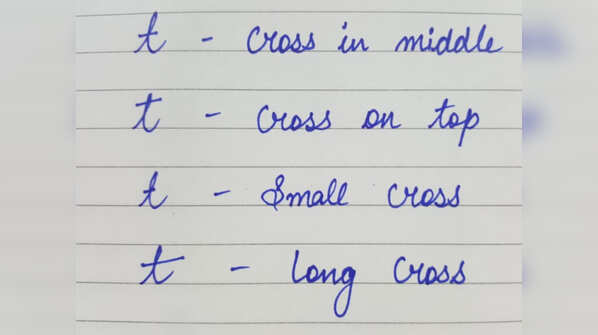 t - cross in middle
t - cross on top
t - Small cross
t - long cross